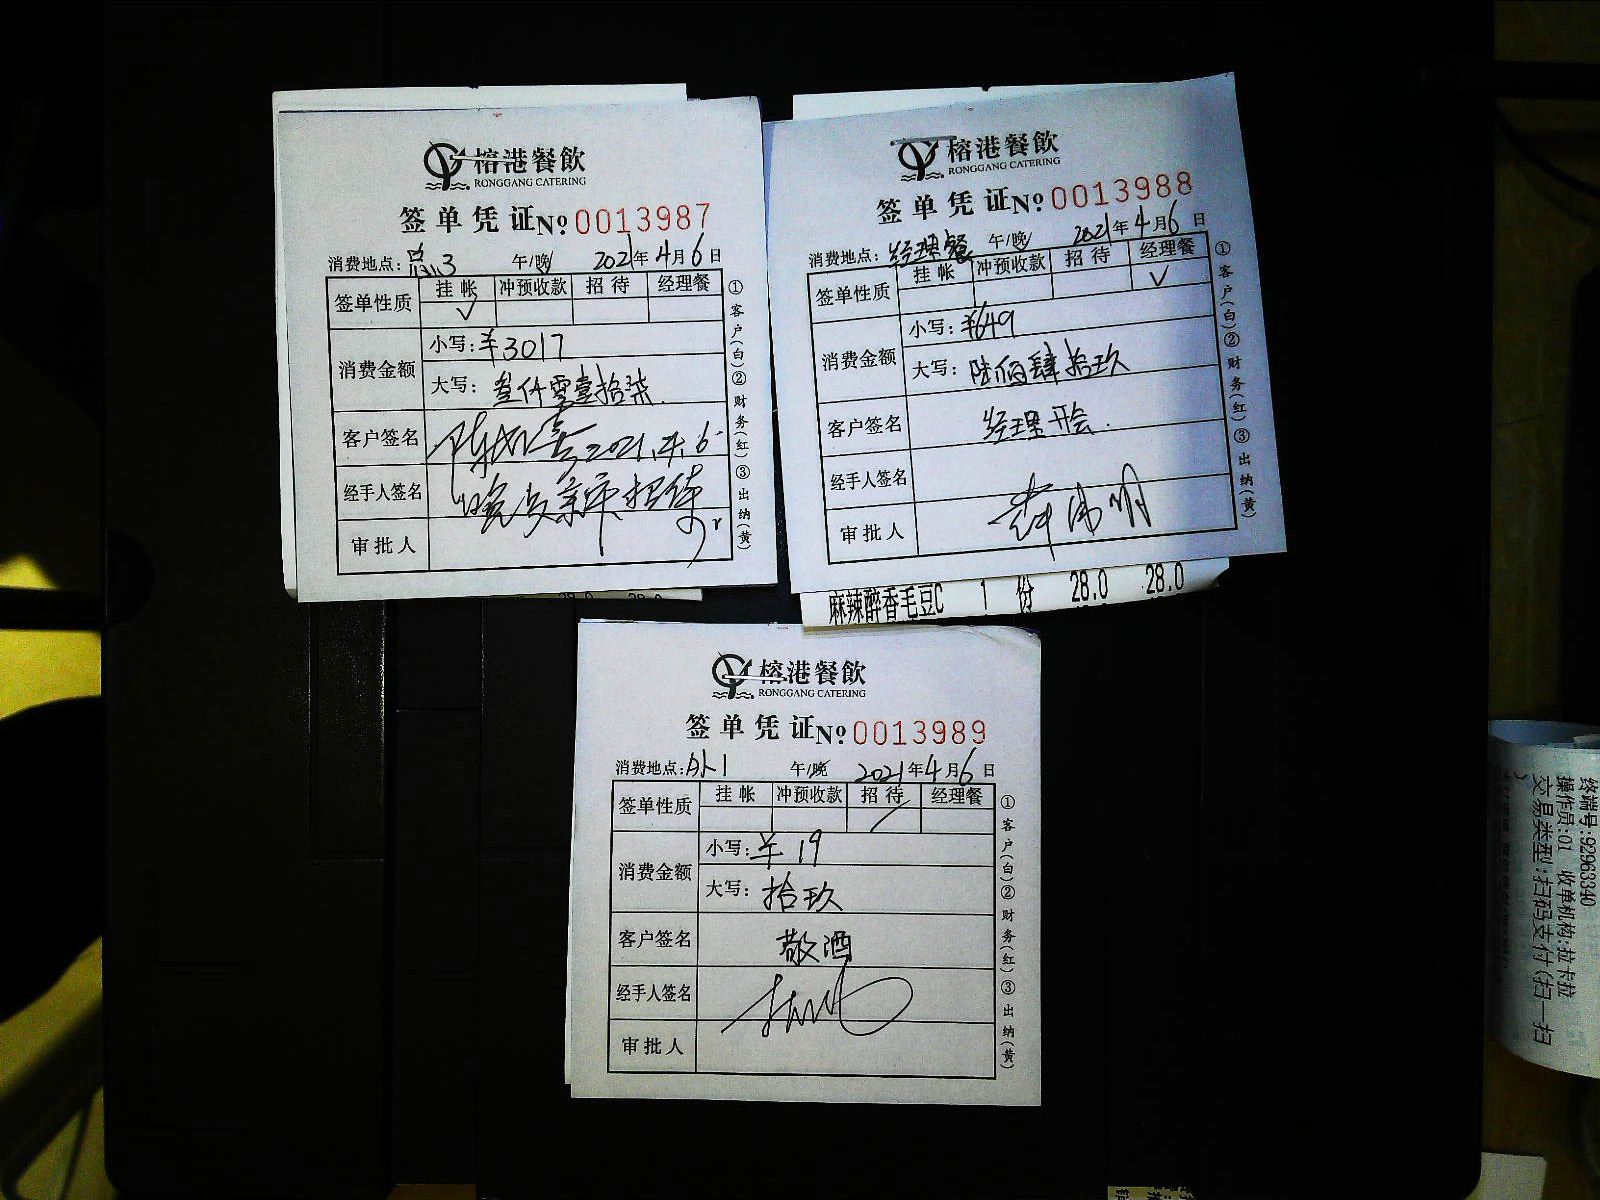 榕港餐飲
RONGGANG CATERING
签单凭证 No 0013987
消费地点: 午/晚 2021年4月6日
签单性质 挂帐 冲预收款 招待 经理餐
✓
消费金额
小写: ¥3017
大写: 叁仟零壹拾柒
客户签名 2021.4.6
经手人签名
审批人
①客户(白)②财务(红)③出纳(黄)
榕港餐飲
RONGGANG CATERING
签单凭证 No 0013988
消费地点: 经理餐 午/晚 2021年4月6日
签单性质 挂帐 冲预收款 招待 经理餐
✓
消费金额
小写: ¥649
大写: 陆佰肆拾玖
客户签名 经理开会.
经手人签名
审批人
①客户(白)②财务(红)③出纳(黄)
麻辣醉香毛豆C 1 份 28.0 28.0
榕港餐飲
RONGGANG CATERING
签单凭证 No 0013989
消费地点: 外1 午/晚 2021年4月6日
签单性质 挂帐 冲预收款 招待 经理餐
消费金额
小写: ¥19
大写: 拾玖
客户签名 敬酒
经手人签名
审批人
①客户(白)②财务(红)③出纳(黄)
终端号:92963340
操作员:01 收单机构:拉卡拉
交易类型:扫码支付(扫一扫
)